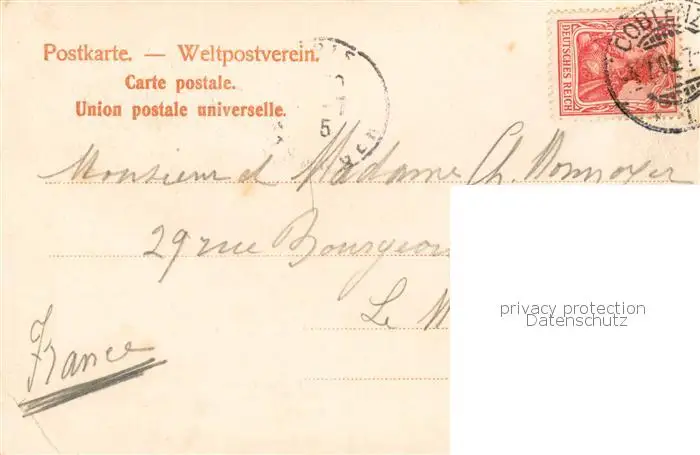 Postkarte. — Weltpostverein.
Carte postale.
Union postale universelle.
DEUTSCHES REICH
COBLENZ
5
Monsieur et Madame Ch.
29 rue Bourgeois
Le M
France
privacy protection
Datenschutz